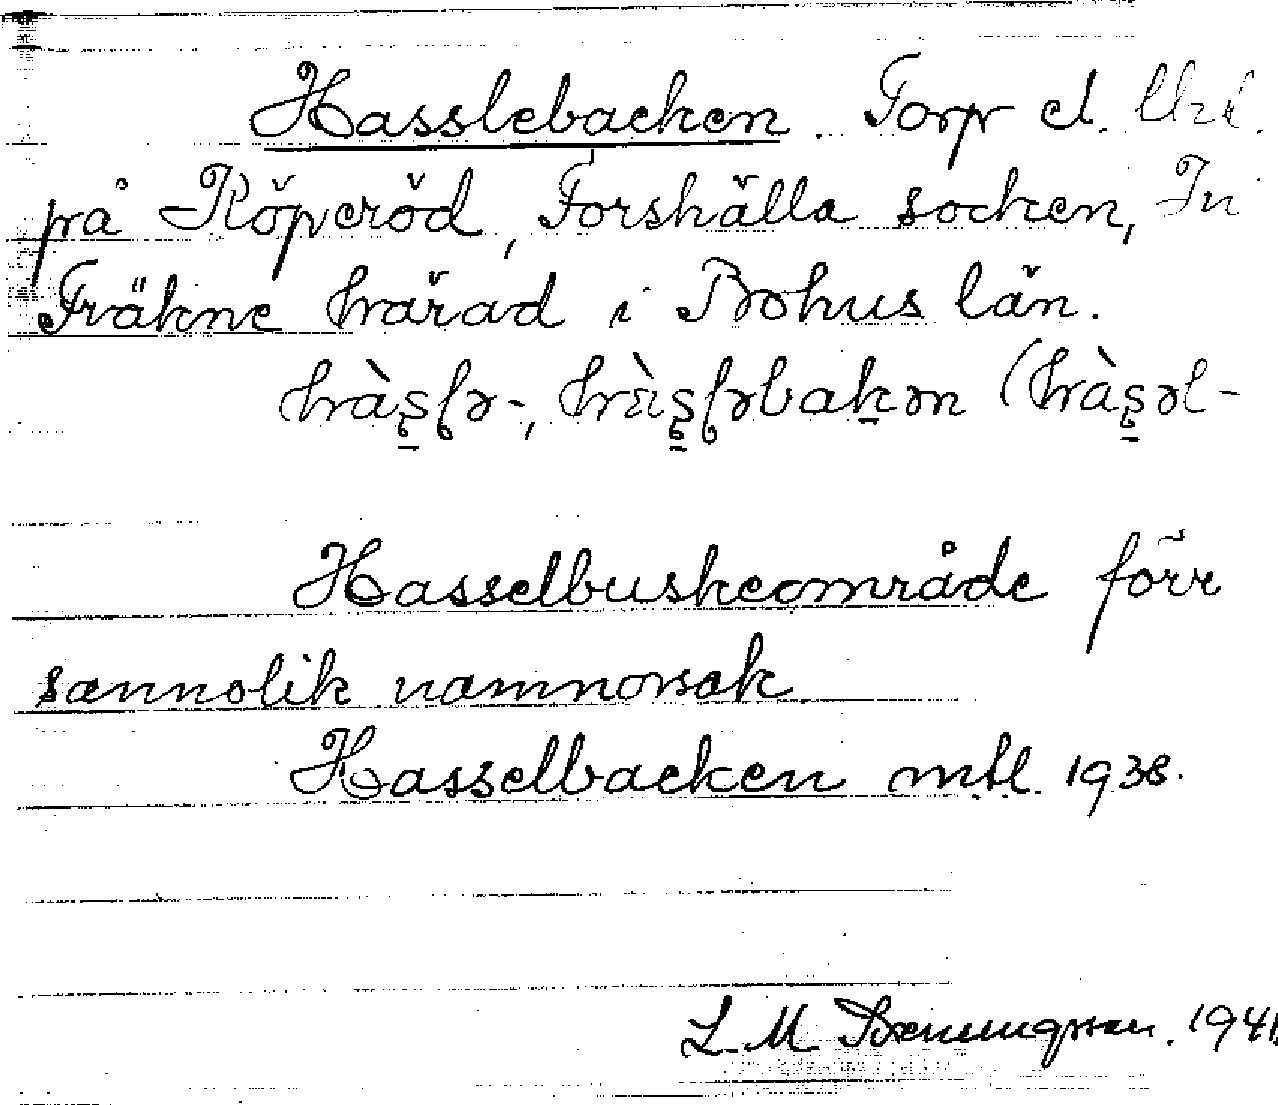 Hasslebacken. Torp el.
på Röperöd, Forshälla socken, In
Fräkne härad i Bohus län.
hàs̠lə-, hàs̠ləbak̠ən (hàs̠əl-
Hasselbuskeområde förr
sannolik namnorsak
Hasselbacken mtl. 1938.
L. M. 1941